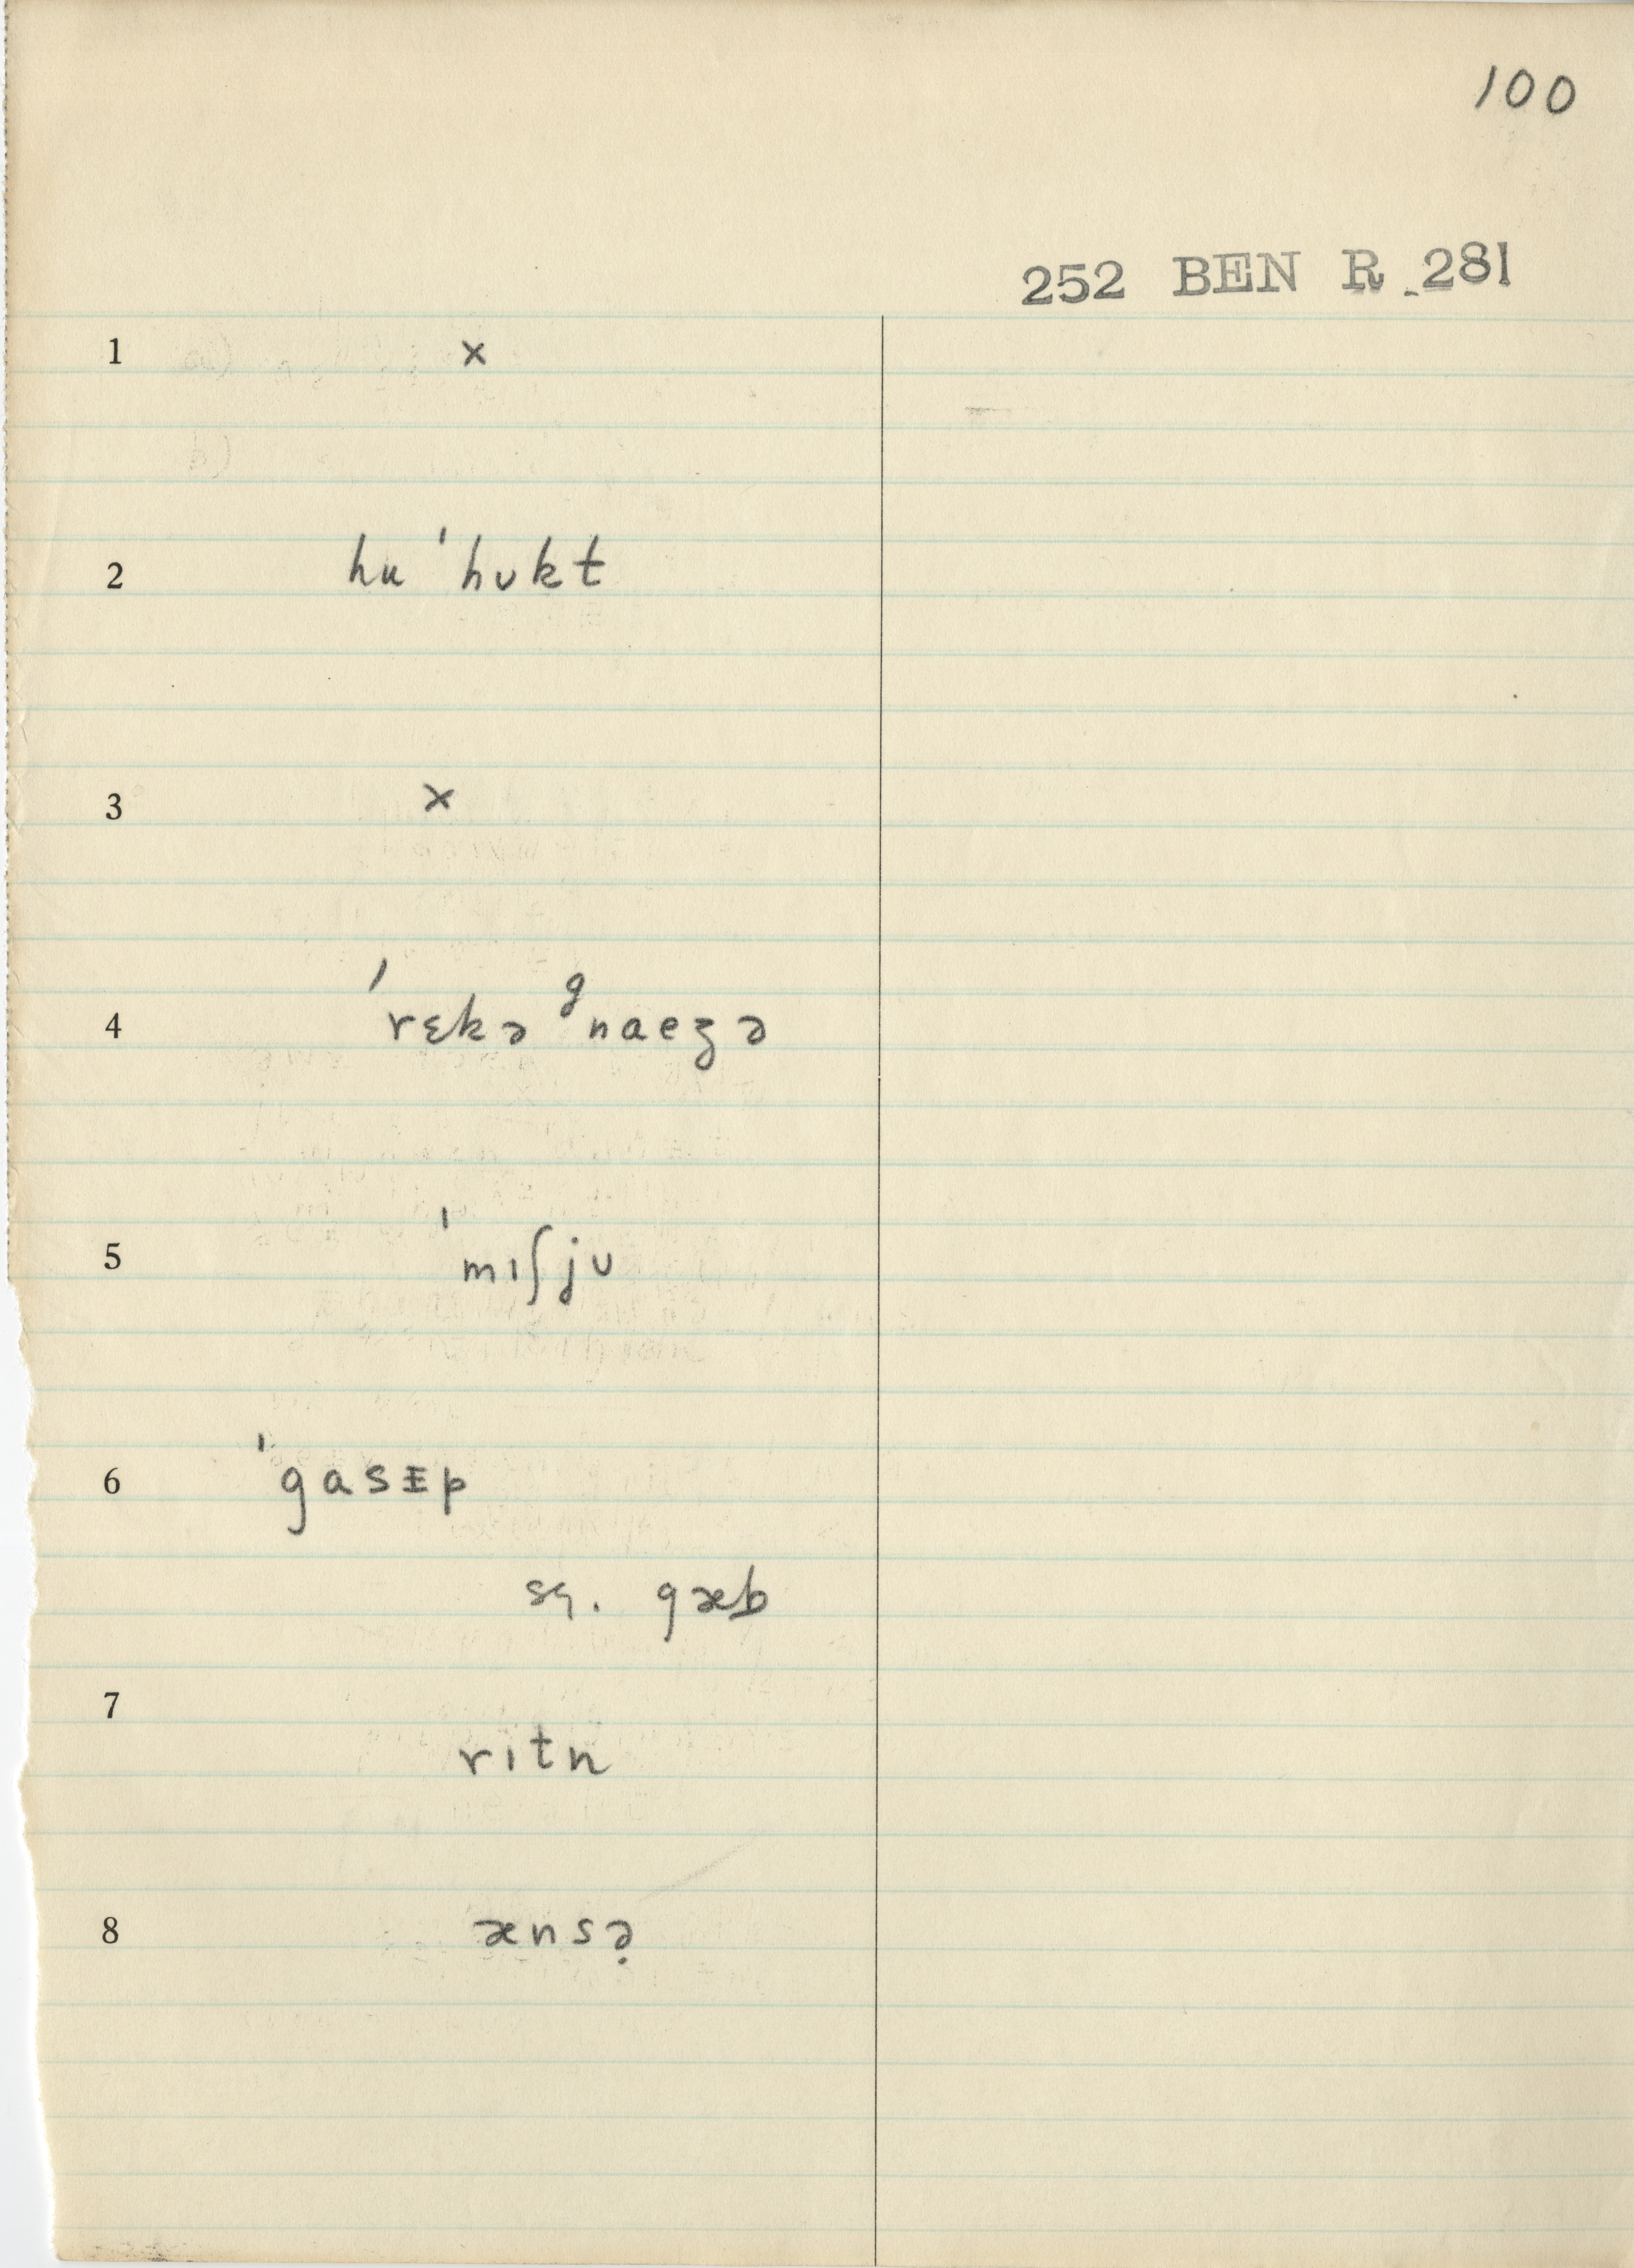 100
252 BEN R 281
1 ×
2 hu ˈhʊkt
3 ×
4 ˈrɛkə ᵍnaeʒə
5 ˈmɪʃjʊ
6 ˈgasɪp
sq. gæb
7
rɪtn
8 ænsə̣